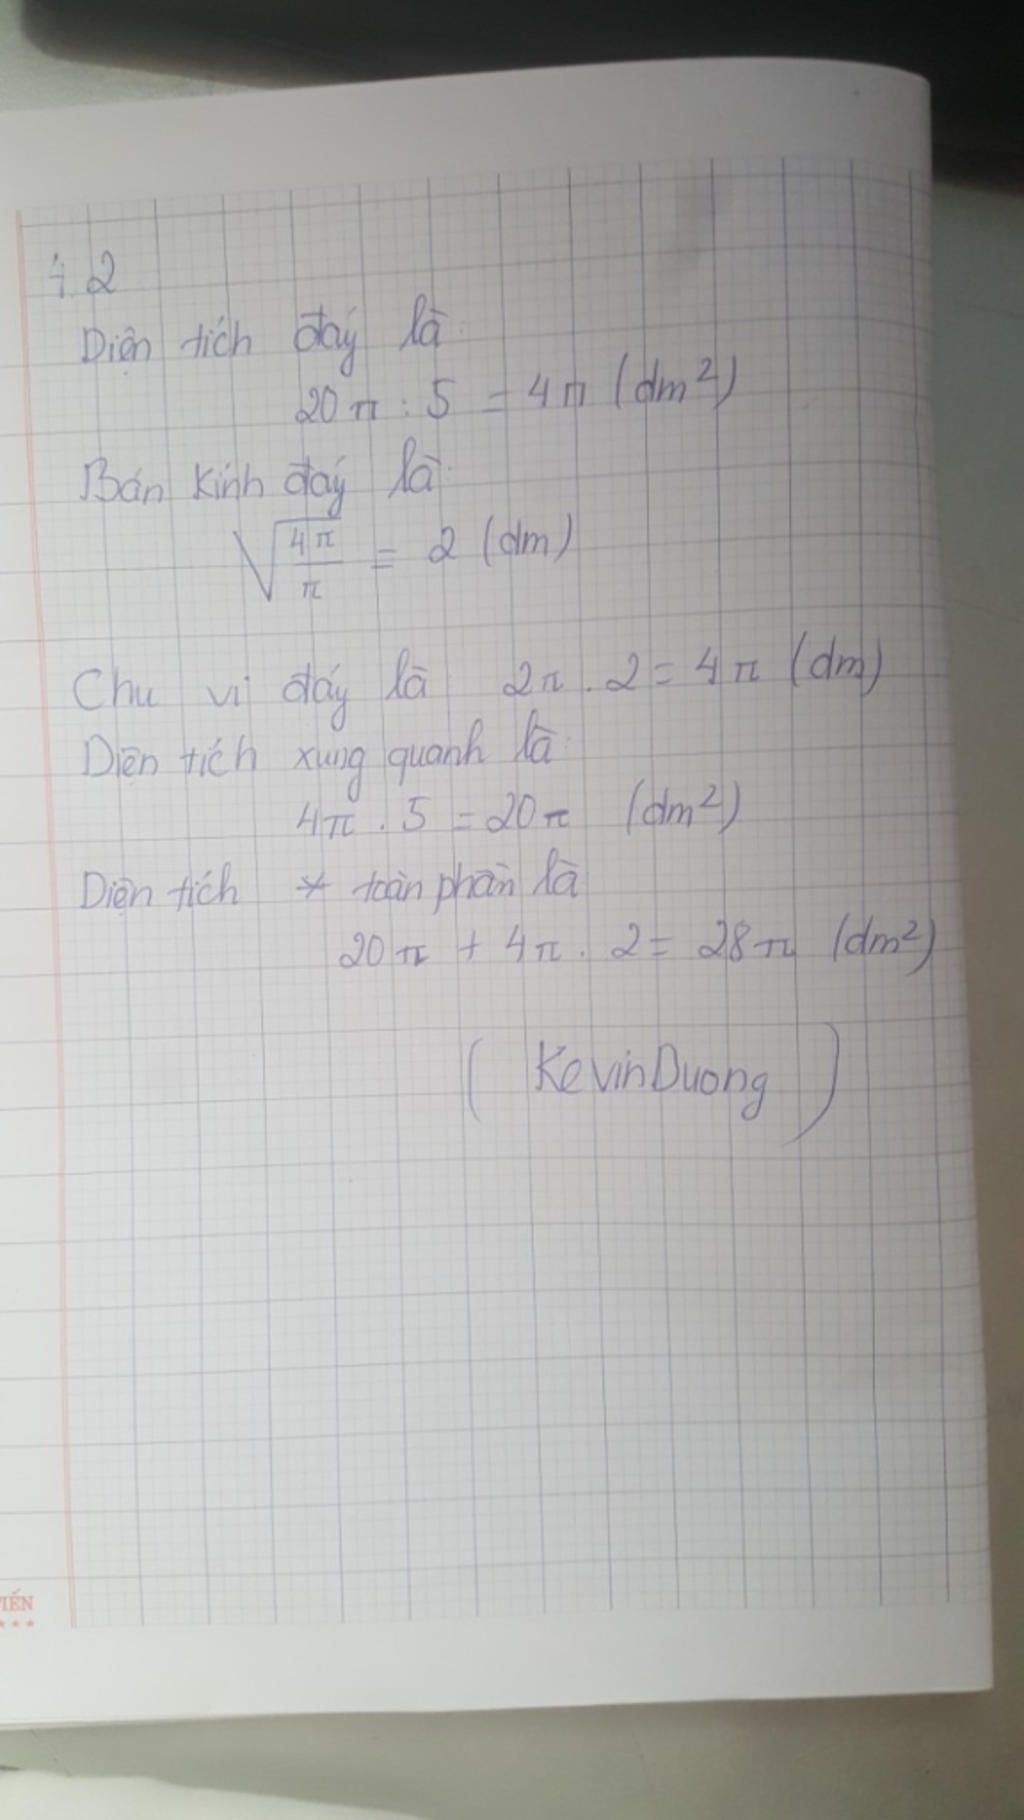 4.2
Diện tích đáy là:
20π : 5 = 4π (dm²)
Bán kính đáy là:
√(4π/π) = 2 (dm)
Chu vi đáy là 2π . 2 = 4π (dm)
Diện tích xung quanh là:
4π . 5 = 20π (dm²)
Diện tích * toàn phần là
20π + 4π . 2 = 28π (dm²)
(KevinDuong)
IẾN
***